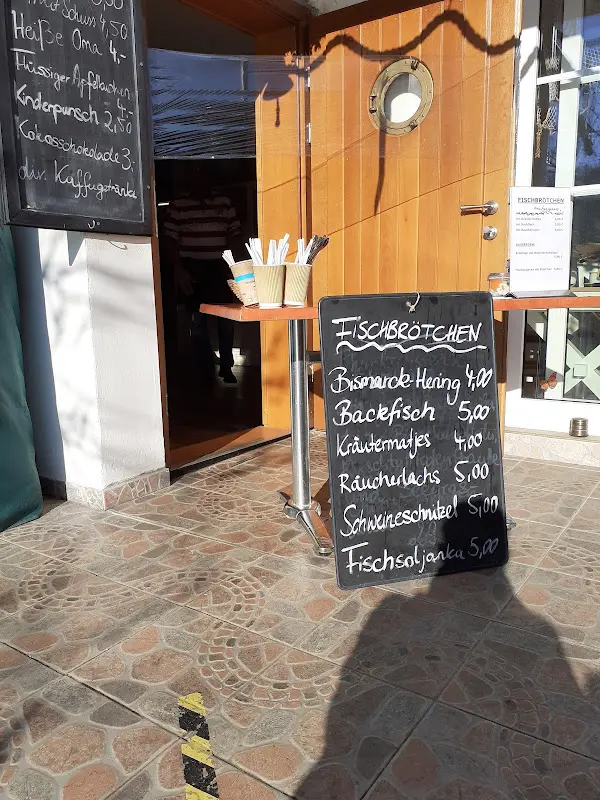 mit Schuss 4,50
Heiße Oma 4,-
Flüssiger Apfelkuchen
4,-
Kinderpunsch 2,50
Kokosschokolade 3,-
div. Kaffeegetränke
FISCHBRÖTCHEN
FISCHBRÖTCHEN
Bismarck-Hering 4,00
Backfisch 5,00
Kräutermatjes 4,00
Räucherlachs 5,00
Schweineschnitzel 5,00
Fischsoljanka 5,00